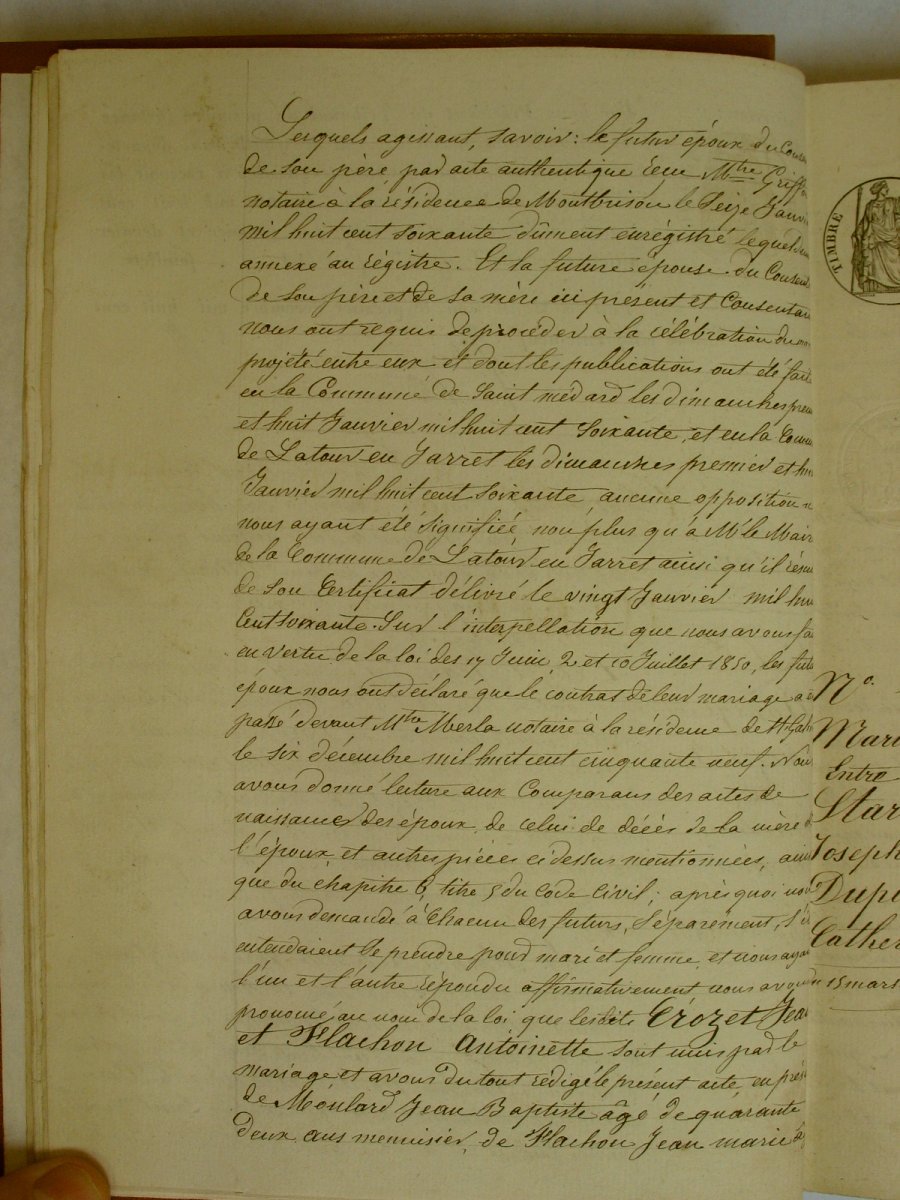 Lesquels agissant, savoir: le futur époux du Cons
de son père par acte authentique reçu Mtre Griffo
notaire à la résidence de Montbrison le Seize Janvi
mil huit cent soixante dûment enrégistré lequel
annexé au régistre. Et la future épouse du Consen
de son père et de sa mère ici présent et Consentan
nous ont requis de procéder à la célébration du
projété entre eux et dont les publications ont été fait
en la Commune de Saint médard les dimanches prem
et huit Janvier mil huit cent Soixante, et en la Comm
de Latour en Jarret les dimanches premier et hu
Janvier mil huit cent soixante, aucune opposition n
nous ayant été signifiée non plus qu'à Mr le Mair
de la Commune de Latour en Jarret ainsi qu'il résu
de son Certificat délivré le vingt Janvier mil hu
Cent soixante. Sur l'interpellation que nous avons fa
en vertu de la loi des 17 Juin, 2 et 10 Juillet 1850, les futu
époux nous ont déclaré que le contrat de leur mariage a é
passé devant Mtre Merla notaire à la résidence de St Gal
le six décembre mil huit cent cinquante neuf. Nou
avons donné lecture aux Comparans des actes de
naissance des époux, de celui de décès de la mère d
l'époux et autres pièces ci dessus mentionnées, ain
que du chapitre 6, titre 5 du Code Civil; après quoi nou
avons demandé à Chacun des futurs, Séparément, s'i
entendaient se prendre pour mari et femme, et nous aya
l'un et l'autre répondu affirmativement nous avons
prononcé au nom de la loi que lesdits Crozet Jean
et Flachon Antoinette sont unis par le
mariage et avons du tout rédigé le présent acte, en prés
de Moulard Jean Baptiste âgé de quarante
deux ans menuisier, de Flachon Jean marie â
TIMBRE
No.
Mari
Entre
Star
Joseph
Dupu
Cather
15 mars